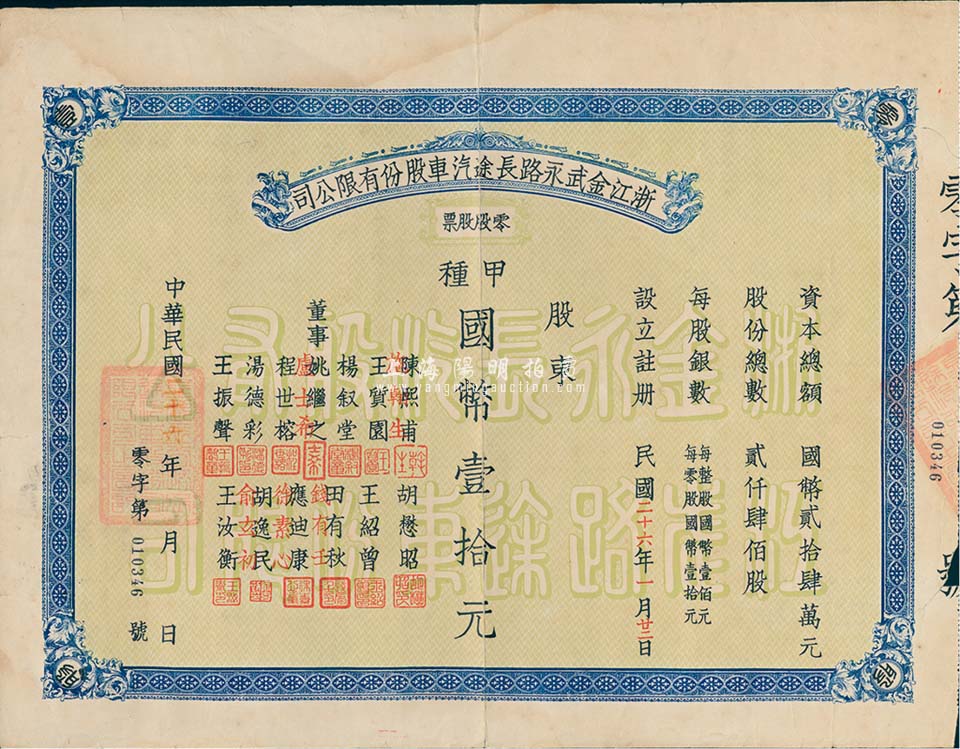 浙江金武永路長途汽車股份有限公司
零股股票
資本總額 國幣貳拾肆萬元
股份總數 貳仟肆佰股
每股銀數 每整股國幣壹佰元
每零股國幣壹拾元
設立註册 民國二十六年一月廿二日
股東
甲種
國幣壹拾元
董事
陳熙甫 胡懋昭
王贊園 王紹曾
楊叙堂 田有秋
姚繼之 應迪康
程世榕 徐素心
湯德彩 胡逸民
王振聲 王汝衡
錢有壬
俞玄初
中華民國二十六年 月 日
零字第 010346 號
零字第
010346
號
上海陽明拍賣
www.yangmingauction.com